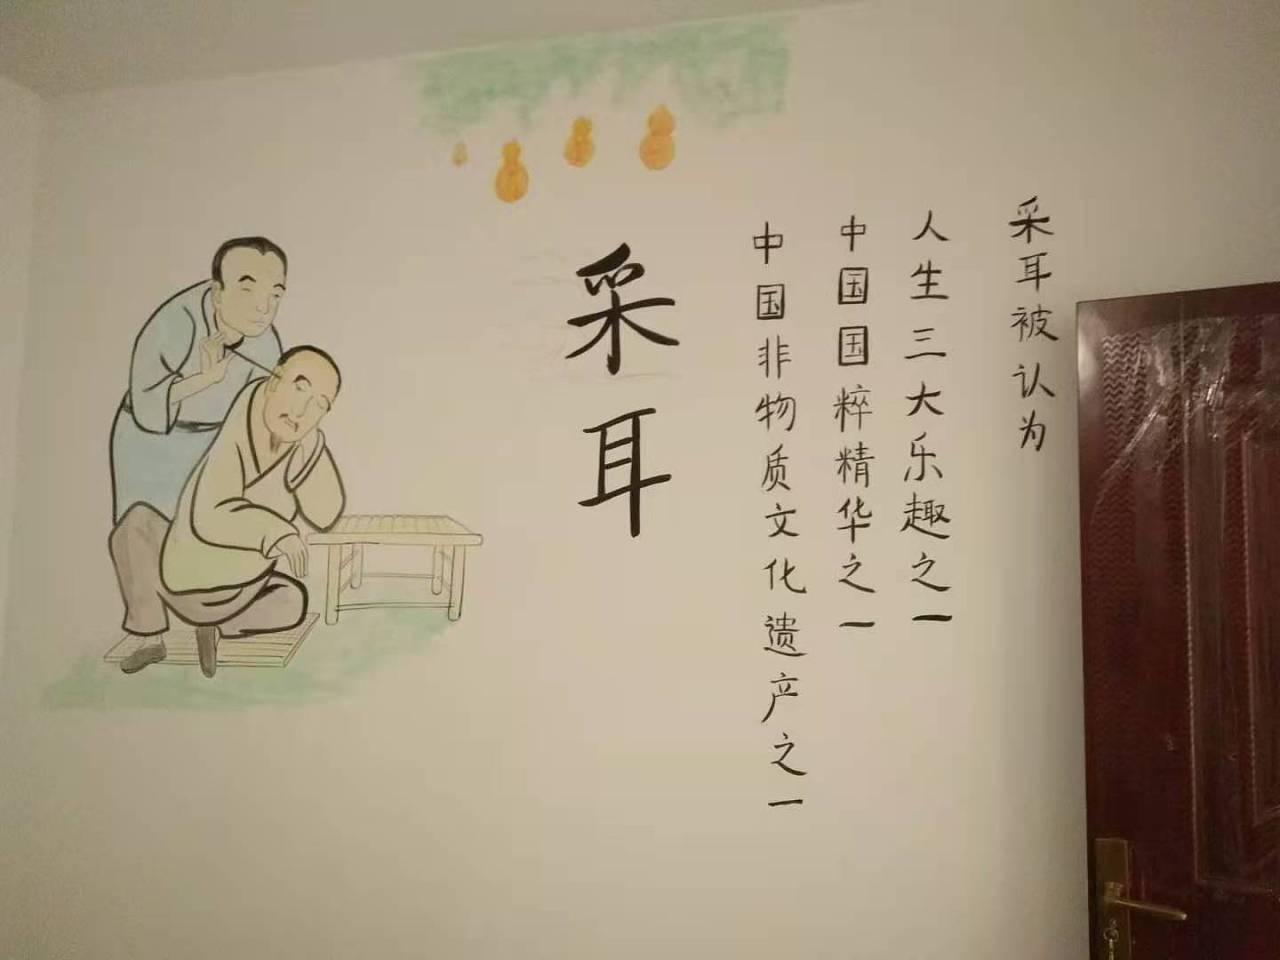 采耳被认为
人生三大乐趣之一
中国国粹精华之一
中国非物质文化遗产之一
采耳